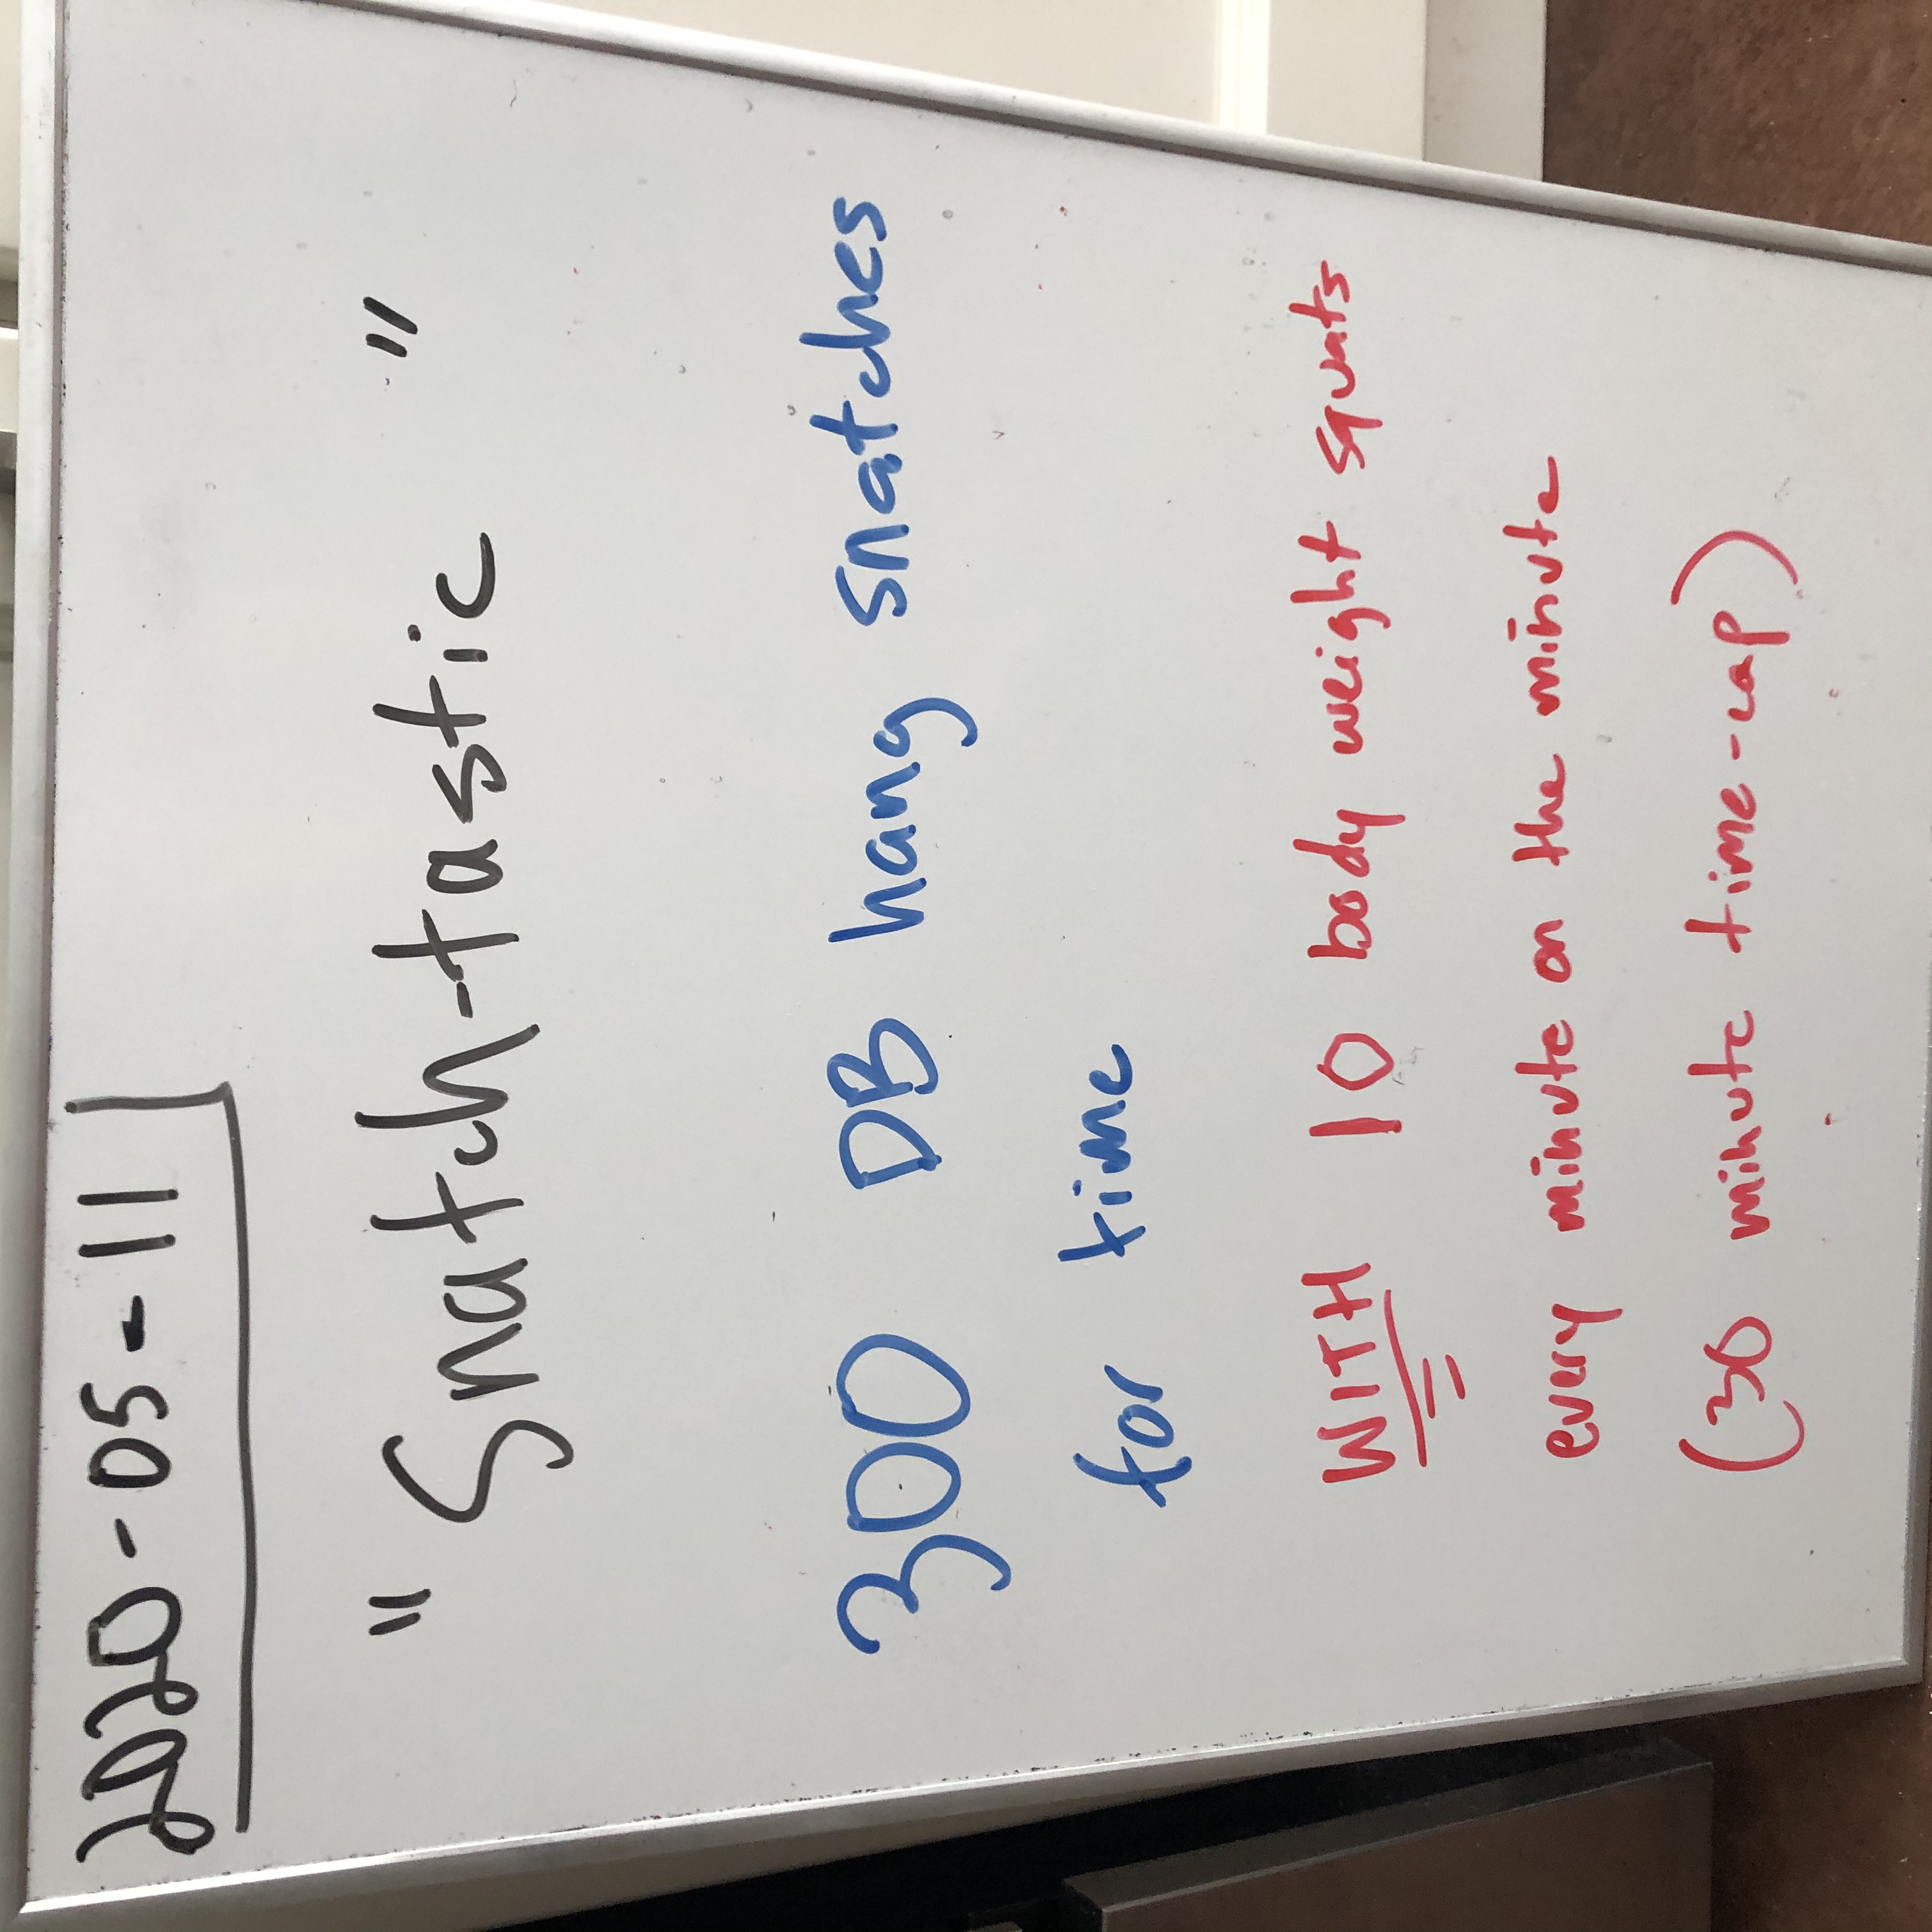 2020-05-11
"Snatch-tastic"
300 DB hang snatches
for time
WITH 10 body weight squats
every minute on the minute
(30 minute time-cap)